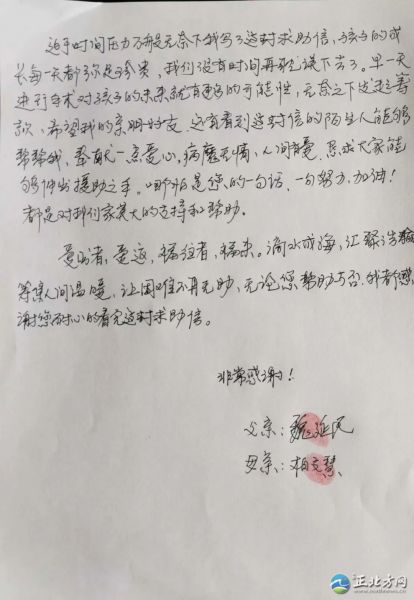 迫于时间压力不够无奈下我写了这封求助信，孩子的成
长每一天都弥足珍贵，我们没有时间再耽误下去了。早一天
进行手术对孩子的未来就有更多的可能性，无奈之下发起筹
款，希望我的亲朋好友，还有看到这封信的陌生人能够
帮帮我，奉献一点爱心，病魔无情，人间有爱，恳求大家能
够伸出援助之手。哪怕是您的一句话，一句努力，加油！
都是对我们家莫大的支持和帮助。
爱出者，爱返，福往者，福来。滴水成海，汇聚
人间温暖，让困难不再无助，无论您帮助与否，我都感
谢您耐心的看完这封求助信。
非常感谢！
父亲：魏延民
母亲：柏文慧
正北方网
www.northnews.cn